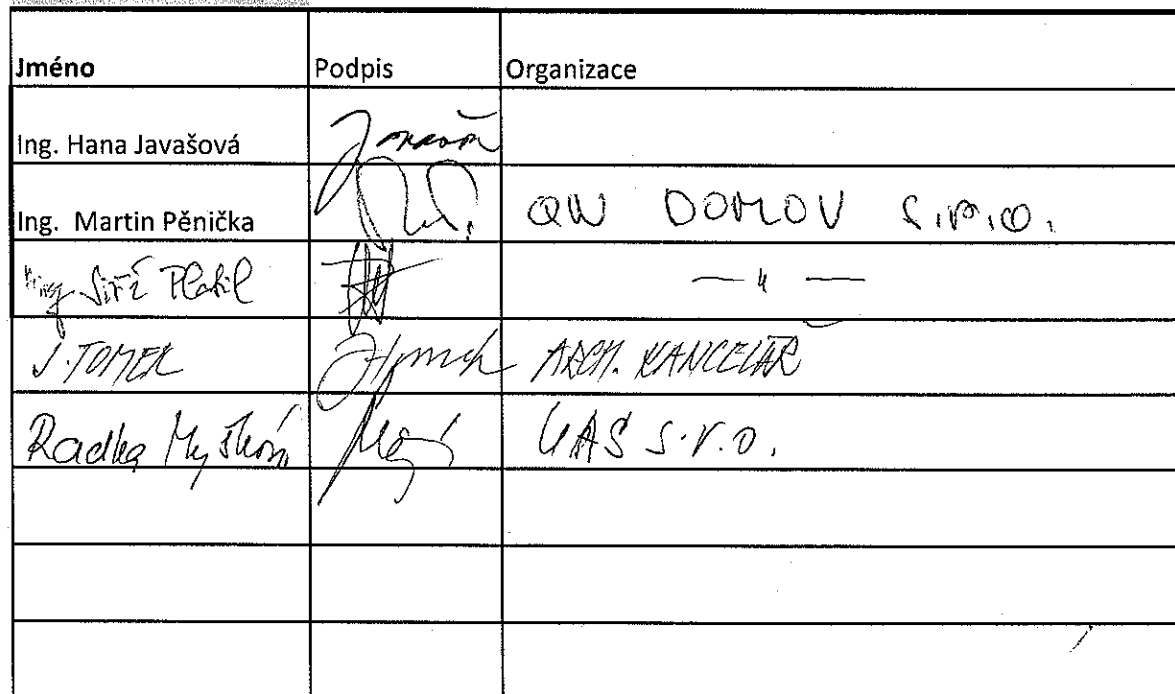 Jméno Podpis Organizace
Ing. Hana Javašová
Ing. Martin Pěnička QW DOMOV s.r.o.
Ing Jiří — " —
J. TOMEK ARCH. KANCELÁŘ
Radka s.r.o.